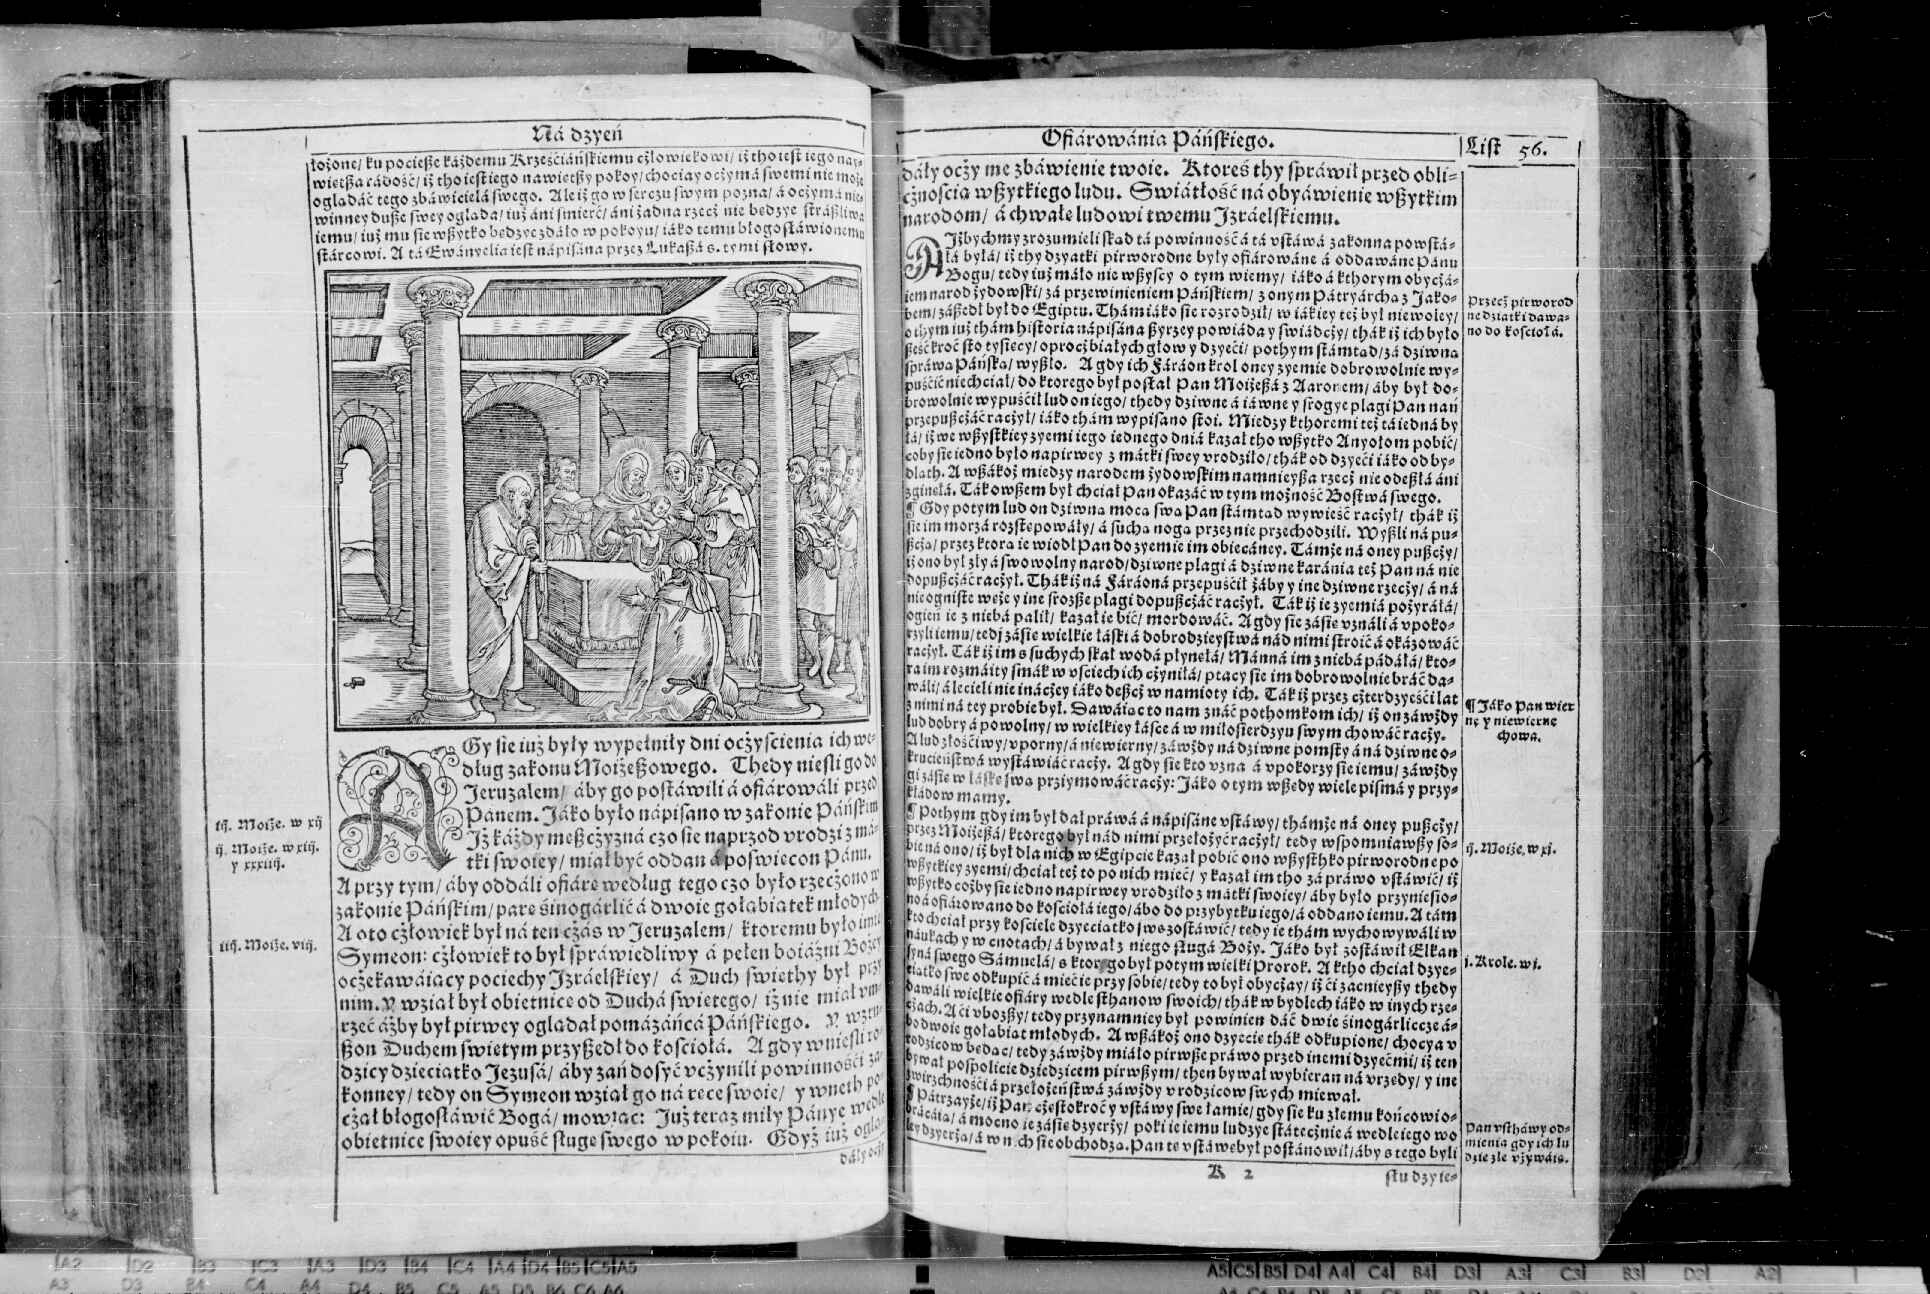 Ná dzyeń
łożone/ ku pociesze káżdemu Krześciáńskiemu człowiekowi/ iż tho iest iego nay-
więtsza rádość/ iż tho iest iego nawiętszy pokoy/ chociay oczymá swemi nie może
oglądáć tego zbáwicielá swego. Ale iż go w sercu swym pozna/ á oczymá nie-
winney dusze swey ogląda/ iuż áni śmierć/ áni żadna rzecz nie będzye strászliwa
iemu/ iuż mu sie wszytko będzye zdáło w pokoyu/ iáko temu błogosłáwionemu
stárcowi. A tá Ewányelia iest nápisána przez Łukaszá s. tymi słowy.
A Gdy sie iuż były wypełniły dni oczyścienia ich we-
dług zakonu Moiżeszowego. Thedy nieśli go do
Jeruzalem/ áby go postáwili á ofiárowáli przed
Pánem. Jáko było nápisano w zakonie Páńskim
Jż káżdy mężczyzná czo sie naprzod vrodzi z má-
tki swoiey/ miał być oddan á poświęcon Pánu.
A przy tym/ áby oddáli ofiárę według tego czo było rzeczono w
zakonie Páńskim/ parę sinogárlic á dwoie gołąbiątek młodych.
A oto człowiek był ná ten czás w Jeruzalem/ ktoremu było imię
Symeon: człowiek to był spráwiedliwy á pełen boiáźni Bożey
oczekawáiący pociechy Jzráelskiey/ á Duch święthy był przy
nim. Y wziął był obietnicę od Duchá świętego/ iż nie miał vm-
rzeć áżby był pirwey oglądał pomázáńcá Páńskiego. Y wzru-
szon Duchem świętym przyszedł do kościołá. A gdy wnieśli ro-
dzicy dzieciątko Jezusá/ áby zań dosyć vczynili powinności za-
konney/ tedy on Symeon wziął go ná ręce swoie/ y wneth po-
czął błogosłáwić Bogá/ mowiąc: Już teraz miły Pánye wedle
obietnice swoiey opuść sługę swego w pokoiu. Gdyż iuż oglą-
dáły oczy
iij. Moiże. w xij
ij. Moiże. w xiij.
y xxxiiij.
iiij. Moiże. viij.
Ofiárowánia Páńskiego.
List 56.
dáły oczy me zbáwienie twoie. Ktoreś thy spráwił przed obli-
cznością wszytkiego ludu. Swiátłość ná obyáwienie wszytkim
narodom/ á chwałę ludowi twemu Jzráelskiemu.
A Jżbychmy zrozumieli skąd tá powinność á tá vstáwá zakonna powstá-
łá byłá/ iż thy dzyatki pirworodne były ofiárowáne á oddawáne Pánu
Bogu/ tedy iuż máło nie wszyscy o tym wiemy/ iáko á kthorym obyczá-
iem narod żydowski/ zá przewinieniem Páńskiem/ z onym Pátryárchą z Jáko-
bem/ zászedł był do Egiptu. Thám iáko sie rozrodził/ w iákiey też był niewoley/
o thym iuż thám historia nápisána szyrzey powiáda y świádczy/ thák iż ich było
sześć kroć sto tysięcy/ oprocz białych głow y dzyeci/ pothym stámtąd/ zá dziwną
spráwą Páńską/ wyszło. A gdy ich Fáráon krol oney zyemie dobrowolnie wy-
puścić niechciał/ do ktorego był posłał Pan Moiżeszá z Aaronem/ áby był do-
browolnie wypuścił lud on iego/ thedy dziwne á iáwne y srogye plagi Pan nań
przepuszczáć raczył/ iáko thám wypisano stoi. Miedzy kthoremi też tá iedná by
łá/ iż we wszystkiey zyemi iego iednego dniá kazał tho wszytko Anyołom pobić/
coby sie iedno było napirwey z mátki swey vrodziło/ thák od dzyeci iáko od by-
dlath. A wszákoż miedzy narodem żydowskim namnieysza rzecz nie odeszłá áni
zginęłá. Ták owszem był chciał Pan okázáć w tym możność Bostwá swego.
¶ Gdy potym lud on dziwną mocą swą Pan stámtąd wywieść raczył/ thák iż
sie im morzá rozstępowáły/ á suchą nogą przez nie przechodzili. Wyszli ná pu-
szczą/ przez ktorą ie wiodł Pan do zyemie im obiecáney. Támże ná oney puszczy/
iż ono był zły á swowolny narod/ dziwne plagi á dziwne karánia też Pan ná nie
dopuszczáć raczył. Thák iż ná Fáráoná przepuścił żáby y ine dziwne rzeczy/ á ná
nie ogniste węże y ine srozsze plagi dopuszczáć raczył. Ták iż ie zyemiá pożyráłá/
ogień ie z niebá palił/ kazał ie bić/ mordowáć. A gdy sie zásie vználi á vpoko-
rzyli iemu/ tedy zásie wielkie łáski á dobrodzieystwá nád nimi stroić á okázowáć
raczył. Ták iż im s suchych skał wodá płynęłá/ Mánná im z niebá pádáłá/ kto-
ra im rozmáity smák w vściech ich czyniłá/ ptacy sie im dobrowolnie bráć da-
wáli/ á lecieli nie ináczey iáko deszcz w namioty ich. Ták iż przez czterdzyeści lat
z nimi ná tey probie był. Dawáiąc to nam znáć pothomkom ich/ iż on záwżdy
lud dobry á powolny/ w wielkiey łásce á w miłosierdzyu swym chowáć raczy.
A lud złościwy/ vporny/ á niewierny/ záwżdy ná dziwne pomsty á ná dziwne o-
krucieństwá wystáwiáć raczy. A gdy sie kto vzna á vpokorzy sie iemu/ záwżdy
gi zásie w łáskę swą przyimowáć raczy: Jáko o tym wszędy wiele pismá y przy-
kłádow mamy.
¶ Pothym gdy im był dał práwá á nápisáne vstáwy/ thámże ná oney puszczy/
przez Moiżeszá/ ktorego był nád nimi przełożyć raczył/ tedy wspomniawszy so-
bie ná ono/ iż był dla nich w Egipcie kazał pobić ono wszysthko pirworodne po
wszytkiey zyemi/ chciał też to po nich mieć/ y kazał im tho zá práwo vstáwić/ iż
wszytko coźby sie iedno napirwey vrodziło z mátki swoiey/ áby było przyniesio-
no á ofiárowano do kościołá iego/ ábo do przybytku iego/ á oddano iemu. A tám
kto chciał przy kościele dzyeciątko swe zostáwić/ tedy ie thám wychowywáli w
náukach y w cnotach/ á bywał z niego sługá Boży. Jáko był zostáwił Elkan
syná swego Sámuelá/ s ktorego był potym wielki Prorok. A ktho chciał dzye-
ciątko swe odkupić á mieć ie przy sobie/ tedy to był obyczay/ iż ci zacnieyszy thedy
dawáli wielkie ofiáry wedle sthanow swoich/ thák w bydlech iáko w inych rze-
czach. A ci vbozszy/ tedy przynamniey był powinien dáć dwie sinogárlicze á-
bo dwoie gołąbiąt młodych. A wszákoż ono dzyecię thák odkupione/ chocya v
rodzicow będąc/ tedy záwżdy miáło pirwsze práwo przed inemi dzyećmi/ iż ten
bywał pospolicie dziedzicem pirwszym/ then bywał wybieran ná vrzędy/ y ine
zwirzchności á przełożeństwá záwżdy v rodzicow swych miewał.
¶ Pátrzayże/ iż Pan częstokroć y vstáwy swe łamie/ gdy sie ku złemu końcowi o-
brácáią/ á mocno ie zásie dzyerży/ poki ie iemu ludzye státecznie á wedle iego wo
ley dzyerżą/ á w nich sie obchodzą. Pan tę vstáwę był postánowił/ áby s tego byli
K 2
stu dzyie-
Przecz pirworod
ne dziatki dawa-
no do kościołá.
¶ Jáko Pan wier
nę y niewierne
chowa.
ij. Moiże. w xj.
j. Krole. w j.
Pan vsthawy od-
mienia gdy ich lu
dzie źle vżywáią.
A2 D2 B3 C3 A3 D3 B4 C4 A4 D4 B5 C5 A5
A3 D3 B4 C4 A4 D4 B5 C5 A5 D5 B6 C6 A6
A5 C5 B5 D4 A4 C4 B4 D3 A3 C3 B3 D2 A2